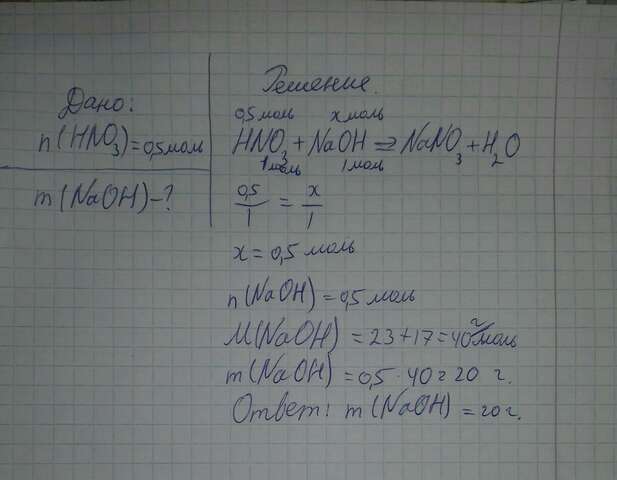 Дано:
n(HNO₃)=0,5моль
m(NaOH)-?
Решение.
0,5 моль x моль
HNO₃ + NaOH = NaNO₃ + H₂O
1моль 1моль
0,5/1 = x/1
x = 0,5 моль
n(NaOH) = 0,5 моль
M(NaOH) = 23+17=40 г/моль
m(NaOH) = 0,5 · 40 = 20 г.
Ответ: m(NaOH) = 20г.